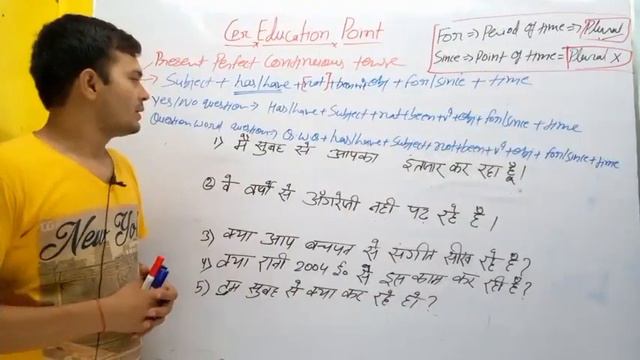 Cer Education Point
For => Period of time => Plural
Since => Point of time = Plural X
Present Perfect Continuous tense
→ Subject + has/have + [not] + been + v⁴ + obj + for/since + time
Yes/No question → Has/have + Subject + not + been + v⁴ + obj + for/since + time
Question word question → Q.W.Q + has/have + Subject + not + been + v⁴ + obj + for/since + time
1) मैं सुबह से आपका इंतजार कर रहा हूँ।
② वे वर्षो से अँगरेजी नही पढ़ रहे है।
3) क्या आप बचपन से संगीत सीख रहे है?
4) क्या रानी 2004 ई० से इस काम कर रही है?
5) तुम सुबह से क्या कर रहे हो?
New York